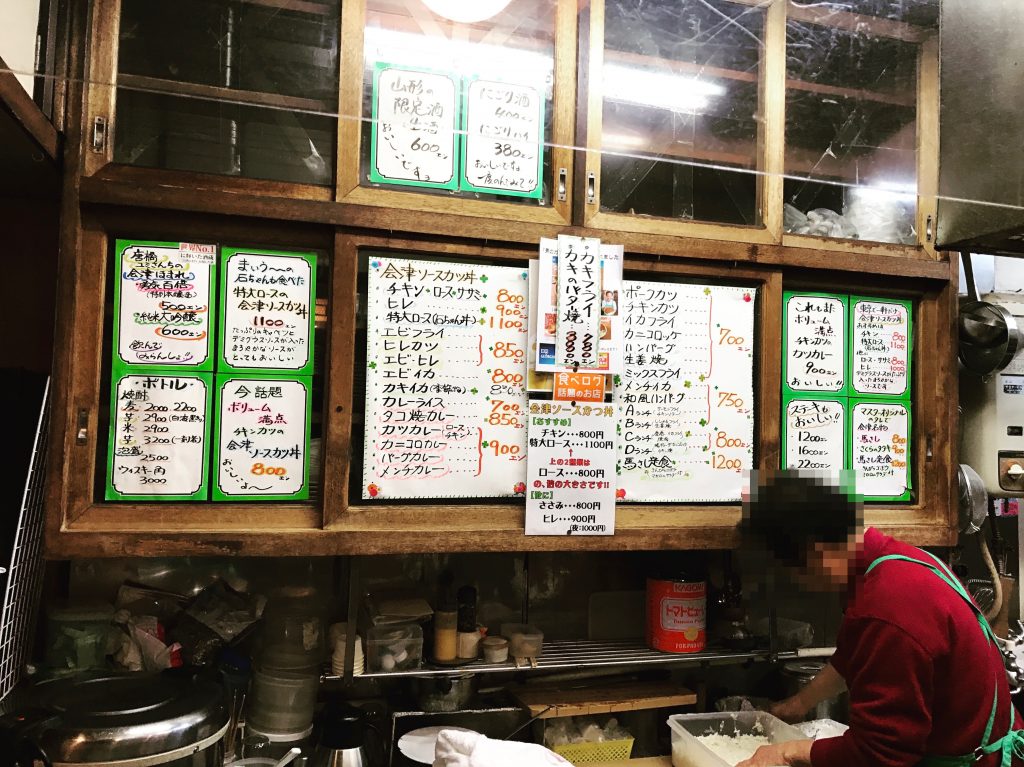 山形の
限定酒
生酒
600エン
おいしいですョ
にごり酒
400エン
にごりハイ
380エン
おいしいですね
一度のんでみて!!
世界No.1
会津ほまれ
(特別本醸造)
500エン
純米大吟醸
600エン
飲んで
まいう〜の
石ちゃんが食べた
特大ロースの
会津ソースカツ丼
1100エン
たっぷりのキャベツと
デミグラスソースが入った
まろやかなソースが
とってもおいしい
・ボトル・
焼酎
麦 2000 2200
芋 2900 (白波黒丸)
米 2900
芋 3200 (一刻者)
泡盛 2500
ウィスキー角
3000
今話題
ボリューム
満点
チキンカツの
会津
ソースカツ丼
おいし〜い
800
会津ソースカツ丼
チキン・ロース・ササミ 800
ヒレ 900
特大ロース(石ちゃん丼) 1100
エビフライ
ヒレカツ
エビ・ヒレ
エビ・イカ
850
カキイカ
カレーライス 700
タコ焼カレー 850
カツカレー (ロース・チキン)
カニコロカレー
バーグカレー
メンチカレー
900エン
カキフライ… 880エン
カキのバタ焼… 880エン
食べログ
話題のお店
会津ソースかつ丼
【おすすめ】
チキン・・・800円
特大ロース・・・1100円
↑
上の2種類は
ロース・・・800円
の、倍の大きさです!!
【他に】
ささみ・・・800円
ヒレ・・・900円
(夜:1000円)
ポークカツ
チキンカツ
イカフライ
カニコロッケ
ハンバーグ
生姜焼
700
ミックスフライ
メンチイカ
和風ハンバーグ
Aランチ
Bランチ
750
Cランチ
Dランチ
800
馬さし定食 1200エン
これも又
ボリューム
満点
チキンカツの
カツカレー
900エン
おいしい!!
会津ソースカツ丼
おすすめは
チキン 800
特大ロース
(石ちゃん丼) 1100
ロース・ササミ 800
ヒレ 900
ステーキも
おいしい!!
1200エン
1600エン
2200エン
マスターオリジナル
会津名物
・馬さし
・さくらのタタキ
・馬さし定食
KAGOME
トマトピューレー